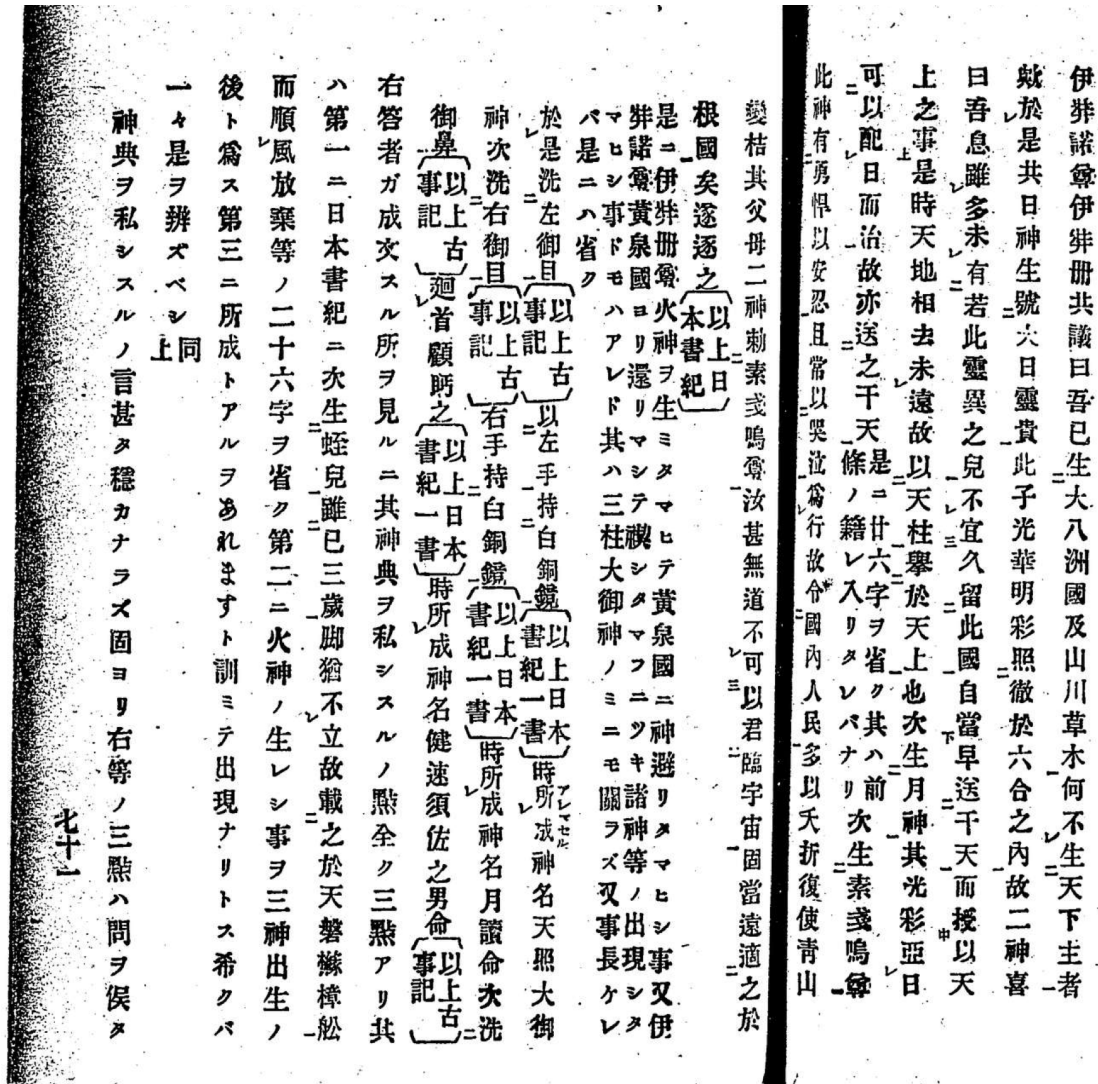 伊弉諾尊伊弉册共議曰吾已生大八洲國及山川草木何不生天下主者
歟於是共日神生號大日靈貴此子光華明彩照徹於六合之內故二神喜
曰吾息雖多未有若此靈異之兒不宜久留此國自當早送于天而授以天
上之事是時天地相去未遠故以天柱擧於天上也次生月神其光彩亞日
可以配日而治故亦送之于天是ニ廿六字ヲ省ク其ハ前
條ノ籍レ入リタレバナリ次生素戔嗚尊
此神有勇悍以安忍且常以哭泣爲行故令國內人民多以夭折復使靑山
變枯其父母二神勅素戔嗚尊汝甚無道不可以君臨宇宙固當遠適之於
根國矣遂逐之〔以上日
本書紀〕
是ニ伊弉册尊火神ヲ生ミタマヒテ黃泉國ニ神避リタマヒシ事又伊
弉諾尊黃泉國ヨリ還リマシテ禊シタマフニツキ諸神等ノ出現シタ
マヒシ事ドモハアレド其ハ三柱大御神ノミニモ關ラズ又事長ケレ
バ是ニハ省ク
於是洗左御目〔以上古
事記〕以左手持白銅鏡〔以上日本
書紀一書〕時所成神名天照大御
アレマセル
神次洗右御目〔以上古
事記〕右手持白銅鏡〔以上日本
書紀一書〕時所成神名月讀命次洗
御鼻〔以上古
事記〕廻首顧眄之〔以上日本
書紀一書〕時所成神名健速須佐之男命〔以上古
事記〕
右答者ガ成文スル所ヲ見ルニ其神典ヲ私シスルノ㸃全ク三㸃アリ其
ハ第一ニ日本書紀ニ次生蛭兒雖已三歲脚猶不立故載之於天磐櫲樟舩
而順風放棄等ノ二十六字ヲ省ク第二ニ火神ノ生レシ事ヲ三神出生ノ
後ト爲ス第三ニ所成トアルヲあれますト訓ミテ出現ナリトス希クバ
一々是ヲ辨ズベシ同
上
神典ヲ私シスルノ言甚タ穩カナラズ固ヨリ右等ノ三㸃ハ問ヲ俟タ
七十一